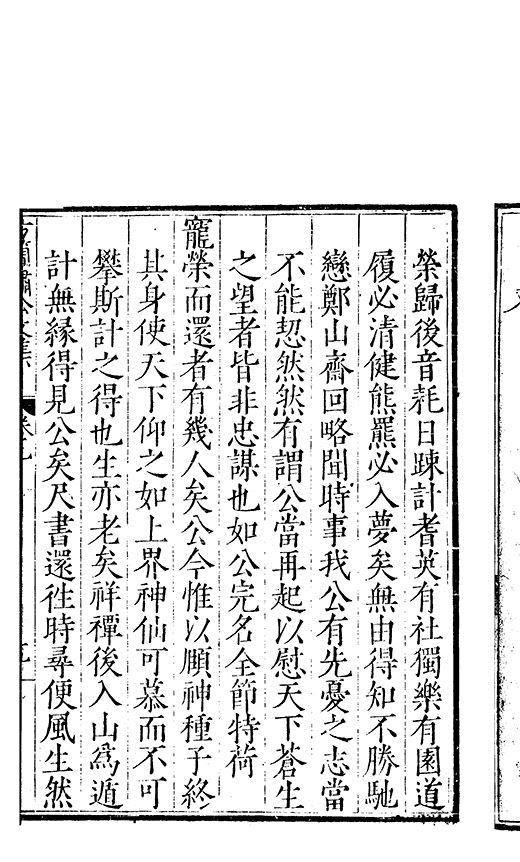 榮歸後音耗日踈計耆英有社獨樂有園道
履必清健熊羆必入夢矣無由得知不勝馳
戀鄭山齋回略聞時事我公有先憂之志當
不能恝然然有謂公當再起以慰天下蒼生
之望者皆非忠謀也如公完名全節特荷
寵榮而還者有幾人矣公今惟以頥神種子終
其身使天下仰之如上界神仙可慕而不可
攀斯計之得也生亦老矣祥禫後入山爲遁
計無緣得見公矣尺書還徃時尋便風生然